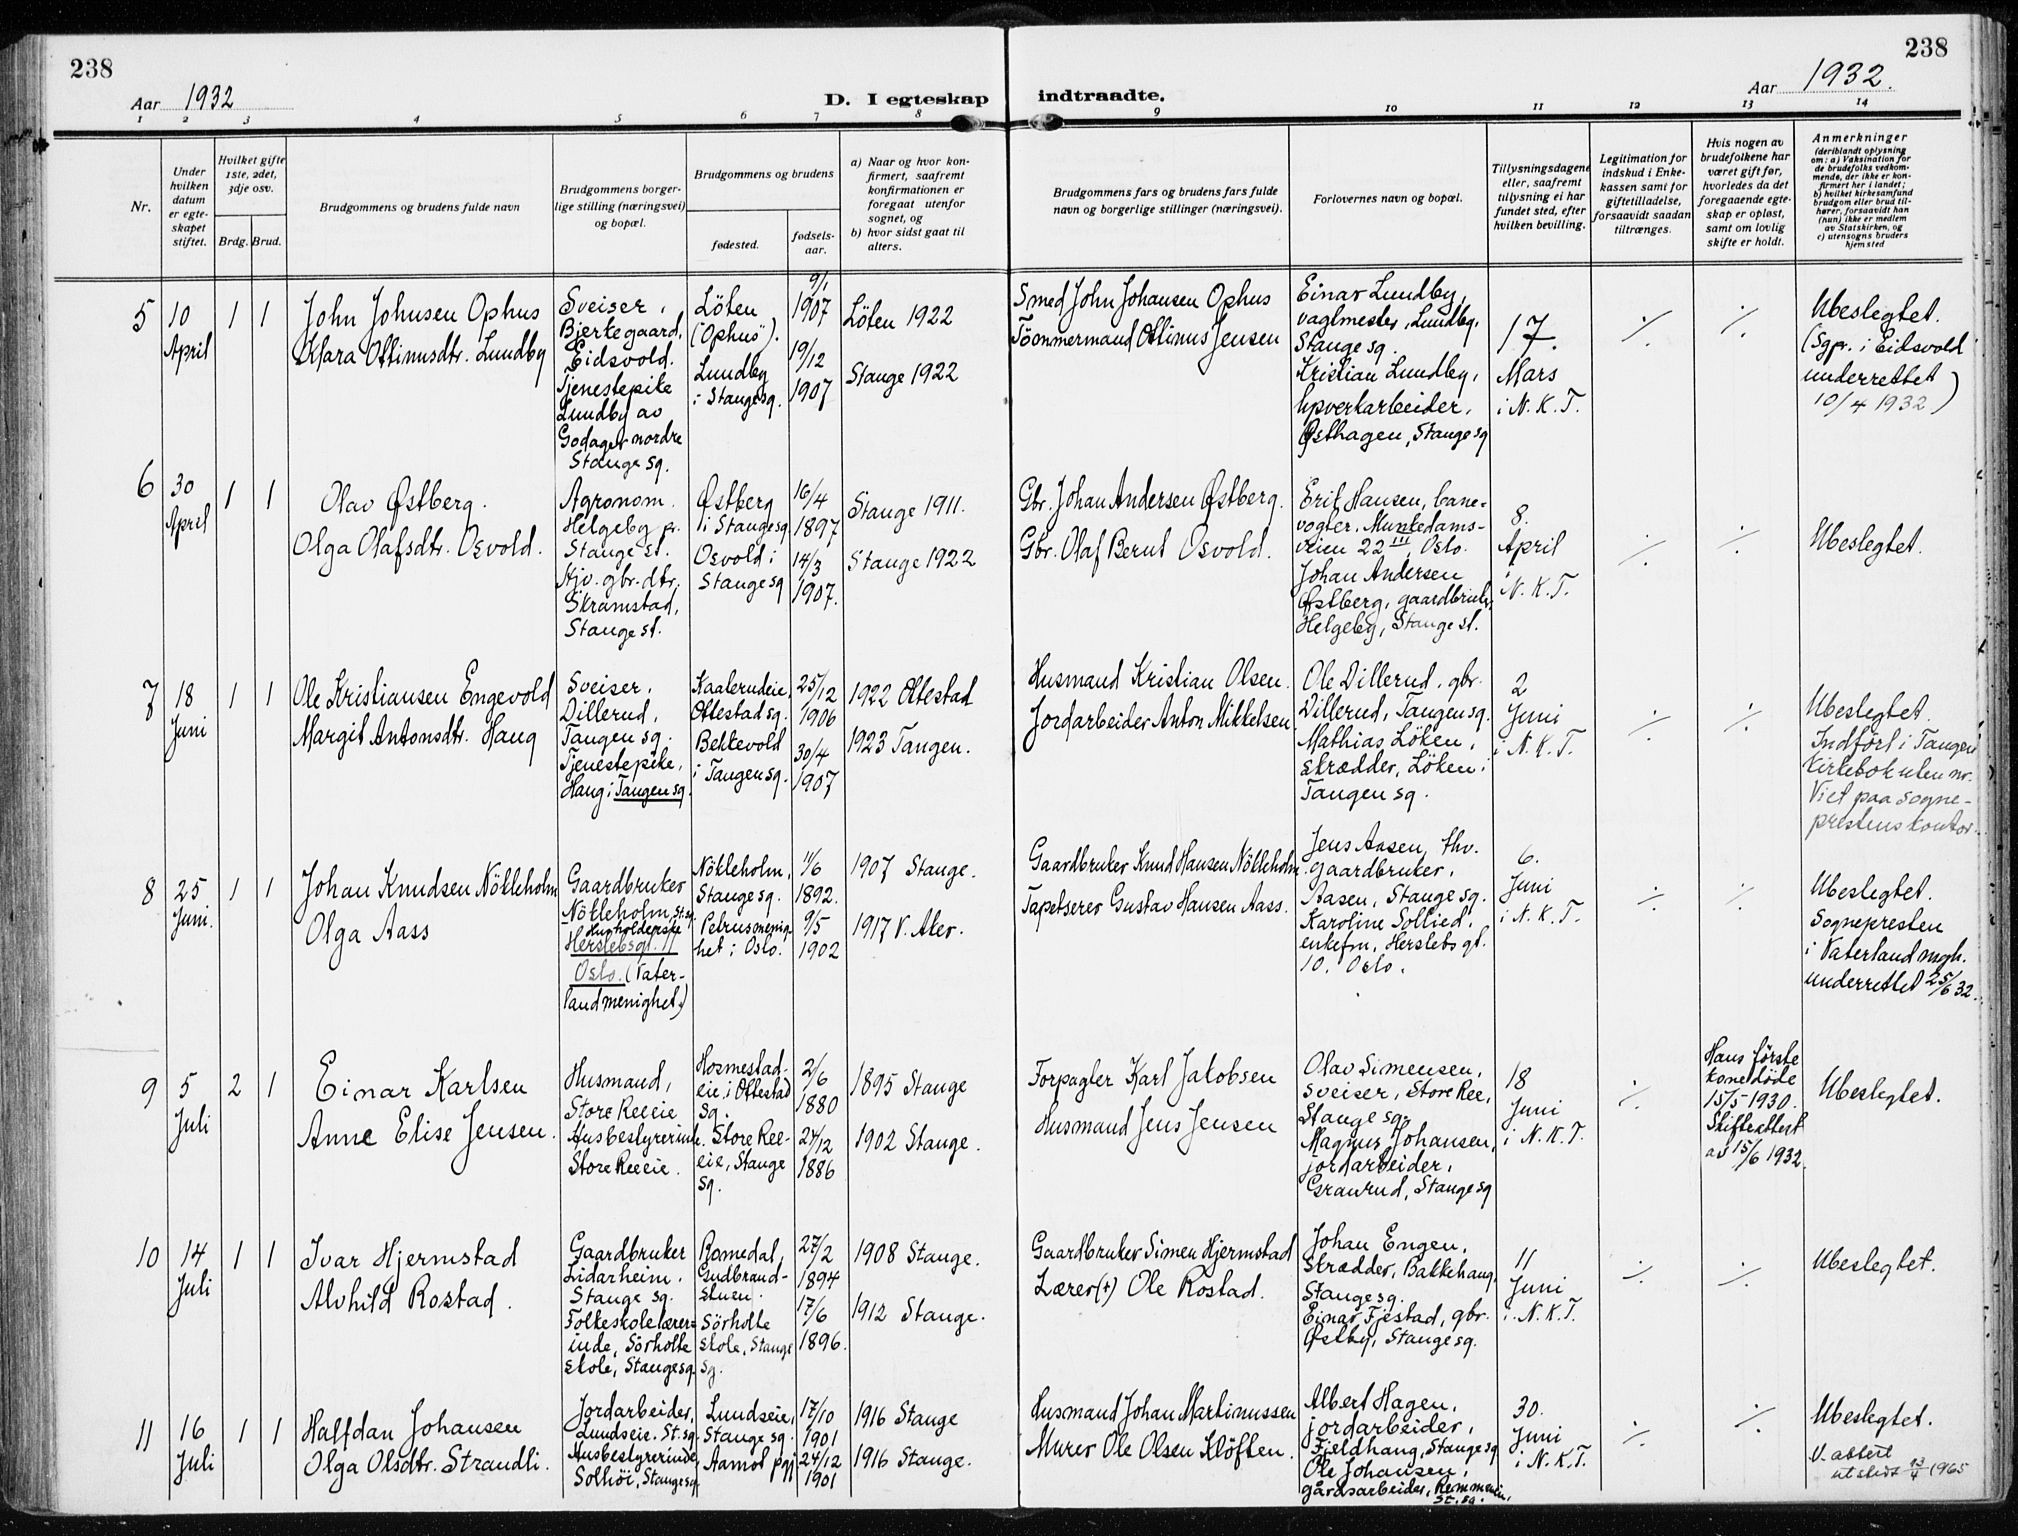 238
Aar 1932
D. I egteskap
indtraadte.
Aar 1932.
238
1 2 3 4 5 6 7 8 9 10 11 12 13 14
Nr.
Under
hvilken
datum
er egte-
skapet
stiftet.
Hvilket gifte
1ste, 2det,
3dje osv.
Brdg. Brud.
Brudgommens og brudens fulde navn
Brudgommens borger-
lige stilling (næringsvei)
og bopæl.
Brudgommens og brudens
fødested.
fødsels-
aar.
a) Naar og hvor kon-
firmert, saafremt
konfirmationen er
foregaat utenfor
sognet, og
b) hvor sidst gaat til
alters.
Brudgommens fars og brudens fars fulde
navn og borgerlige stillinger (næringsvei).
Forlovernes navn og bopæl.
Tillysningsdagene
eller, saafremt
tillysning ei har
fundet sted, efter
hvilken bevilling.
Legitimation for
indskud i Enke-
kassen samt for
giftetilladelse,
forsaavidt saadan
tiltrænges.
Hvis nogen av
brudefolkene har
været gift før,
hvorledes da det
foregaaende egte-
skap er opløst,
samt om lovlig
skifte er holdt.
Anmerkninger
(deriblandt oplysning
om: a) Vaksination for
de brudefolks vedkom-
mende, der ikke er kon-
firmert her i landet;
b) hvilket kirkesamfund
brudgom eller brud til-
hører, forsaavidt han
(hun) ikke er medlem
av Statskirken, og
c) utensogns bruders
hjemsted
5
10
April
1 1
John Johnsen Ophus
Klara Ottinusdtr. Lundby
Sveiser,
Bjerkegaard,
Eidsvold.
Tjenestepike
Lundby av
Godager nordre
Stange sg.
Löten
(Ophus).
Lundby
i Stange sg.
9/1
1907
19/12
1907
Löten 1922
Stange 1922
Smed John Johansen Ophus
Tömmermand Ottinus Jensen
Einar Lundby,
vagtmester, Lundby,
Stange sg.
Kristian Lundby,
Østhagen, Stange sg
17.
Mars
i N. K. T.
./.
./.
Ubeslegtet.
(Sgpr. i Eidsvold
underrettet
10/4 1932)
6
30
April
1 1
Olav Østberg.
Olga Olafsdtr. Osvold.
Agronom.
Helgeby pr.
Stange st.
Hjv. gbr. dtr.
Skramstad,
Stange st.
Østberg
i Stange sg
Osvold i
Stange sg
16/4
1897
14/3
1907.
Stange 1911.
Stange 1922
Gbr. Johan Andersen Østberg.
Gbr. Olaf Bernt Osvold.
Erik Hansen, bane-
vogter. Munkedams-
veien 22 III, Oslo.
Johan Andersen
Østberg, gaardbruker,
Helgeby, Stange st.
8.
April
i N. K. T.
./.
./.
Ubeslegtet.
7
18
Juni
1 1
Ole Kristiansen Engevold
Margit Antonsdtr. Haug
Sveiser.
Dillerud,
Tangen sg.
Tjenestepike,
Haug i Tangen sg.
Kaaterudeie,
Ottestad sg.
Bekkevold
i Tangen sg.
25/12
1906
30/4
1907
1922 Ottestad
1923 Tangen.
Husmand Kristian Olsen.
Jordarbeider Anton Mikkelsen
Ole Dillerud, gbr.
Dillerud, Tangen sg.
Mathias Löken,
skrædder, Löken i
Tangen sg.
2
Juni
i N. K. T.
./.
./.
Ubeslegtet.
Indfört i Tangen
kirkebok uten nr.
Viet paa sogne-
prestens kontor.
8
25
Juni.
1 1
Johan Knudsen Nökleholm
Olga Aass
Gaardbruker
Nökleholm, St. sg.
Husholderske
Herslebsgt. 11
Oslo. (Vater-
landmenighet)
Nökleholm,
Stange sg.
Petrusmenig-
het i Oslo.
11/6
1892.
9/5
1902
1907 Stange.
1917 V. Aker.
Gaardbruker Knud Hansen Nökleholm
Tapetserer Gustav Hansen Aass.
Jens Aasen, fhv.
gaardbruker,
Aasen, Stange sg.
Karoline Sollied,
enkefru, Herslebs gt.
10. Oslo.
6.
Juni
i N. K. T.
./.
./.
Ubeslegtet.
Sognepresten
i Vaterland mgh.
underrettet 25/6 32.
9
5
Juli
2 1
Einar Karlsen
Anne Elise Jensen.
Husmand,
Store Reeeie
Husbestyrerinde.
Store Reeeie.
Hosmestad-
eie, i Ottestad
sg.
Store Ree-
eie, Stange
sg.
2/6
1880
24/12
1886
1895 Stange
1902 Stange.
Forpagter Karl Jakobsen
Husmand Jens Jensen
Olav Simensen,
sveiser, Store Ree,
Stange sg.
Magnus Johansen,
jordarbeider,
Granrud, Stange sg
18
Juni
i N. K. T.
./.
Hans förste
kone döde
15/5 1930.
Skifteattest
av 15/6 1932.
Ubeslegtet.
10
14
Juli
1 1
Ivar Hjermstad
Alvhild Rostad.
Gaardbruker
Lidarheim.
Stange sg.
Folkeskolelærer=
inde, Sörholte
skole, Stange sg.
Romedal,
Gudbrand-
stuen.
Sörholte
skole, Stange
sg.
27/2
1894
17/6
1896.
1908 Stange.
1912 Stange.
Gaardbruker Simen Hjermstad
Lærer (+) Ole Rostad.
Johan Engen,
Skrædder, Bakkehaug,
Stange sg.
Einar Fjestad, gbr.
Østby, Stange sg.
11
Juni
i. N. K. T.
./.
./.
Ubeslegtet.
11
16
Juli
1 1
Halfdan Johansen
Olga Olsdtr. Strandli.
Jordarbeider,
Lundseie. St. sg.
Husbestyrerinde,
Solhöi, Stange sg.
Lundseie,
Stange sg.
Aamot pgj
17/10
1901
24/12
1901
1916 Stange
1916 Stange.
Husmand Johan Martinussen
Murer Ole Olsen Klöften.
Albert Hagen,
jordarbeider,
Fjeldhaug, Stange sg
Ole Johansen,
gårdsarbeider, Remmenin,
St. sg.
30.
Juni
i N. K. T.
./.
./.
Ubeslegtet.
V. attest
utstedt 13/4 1965